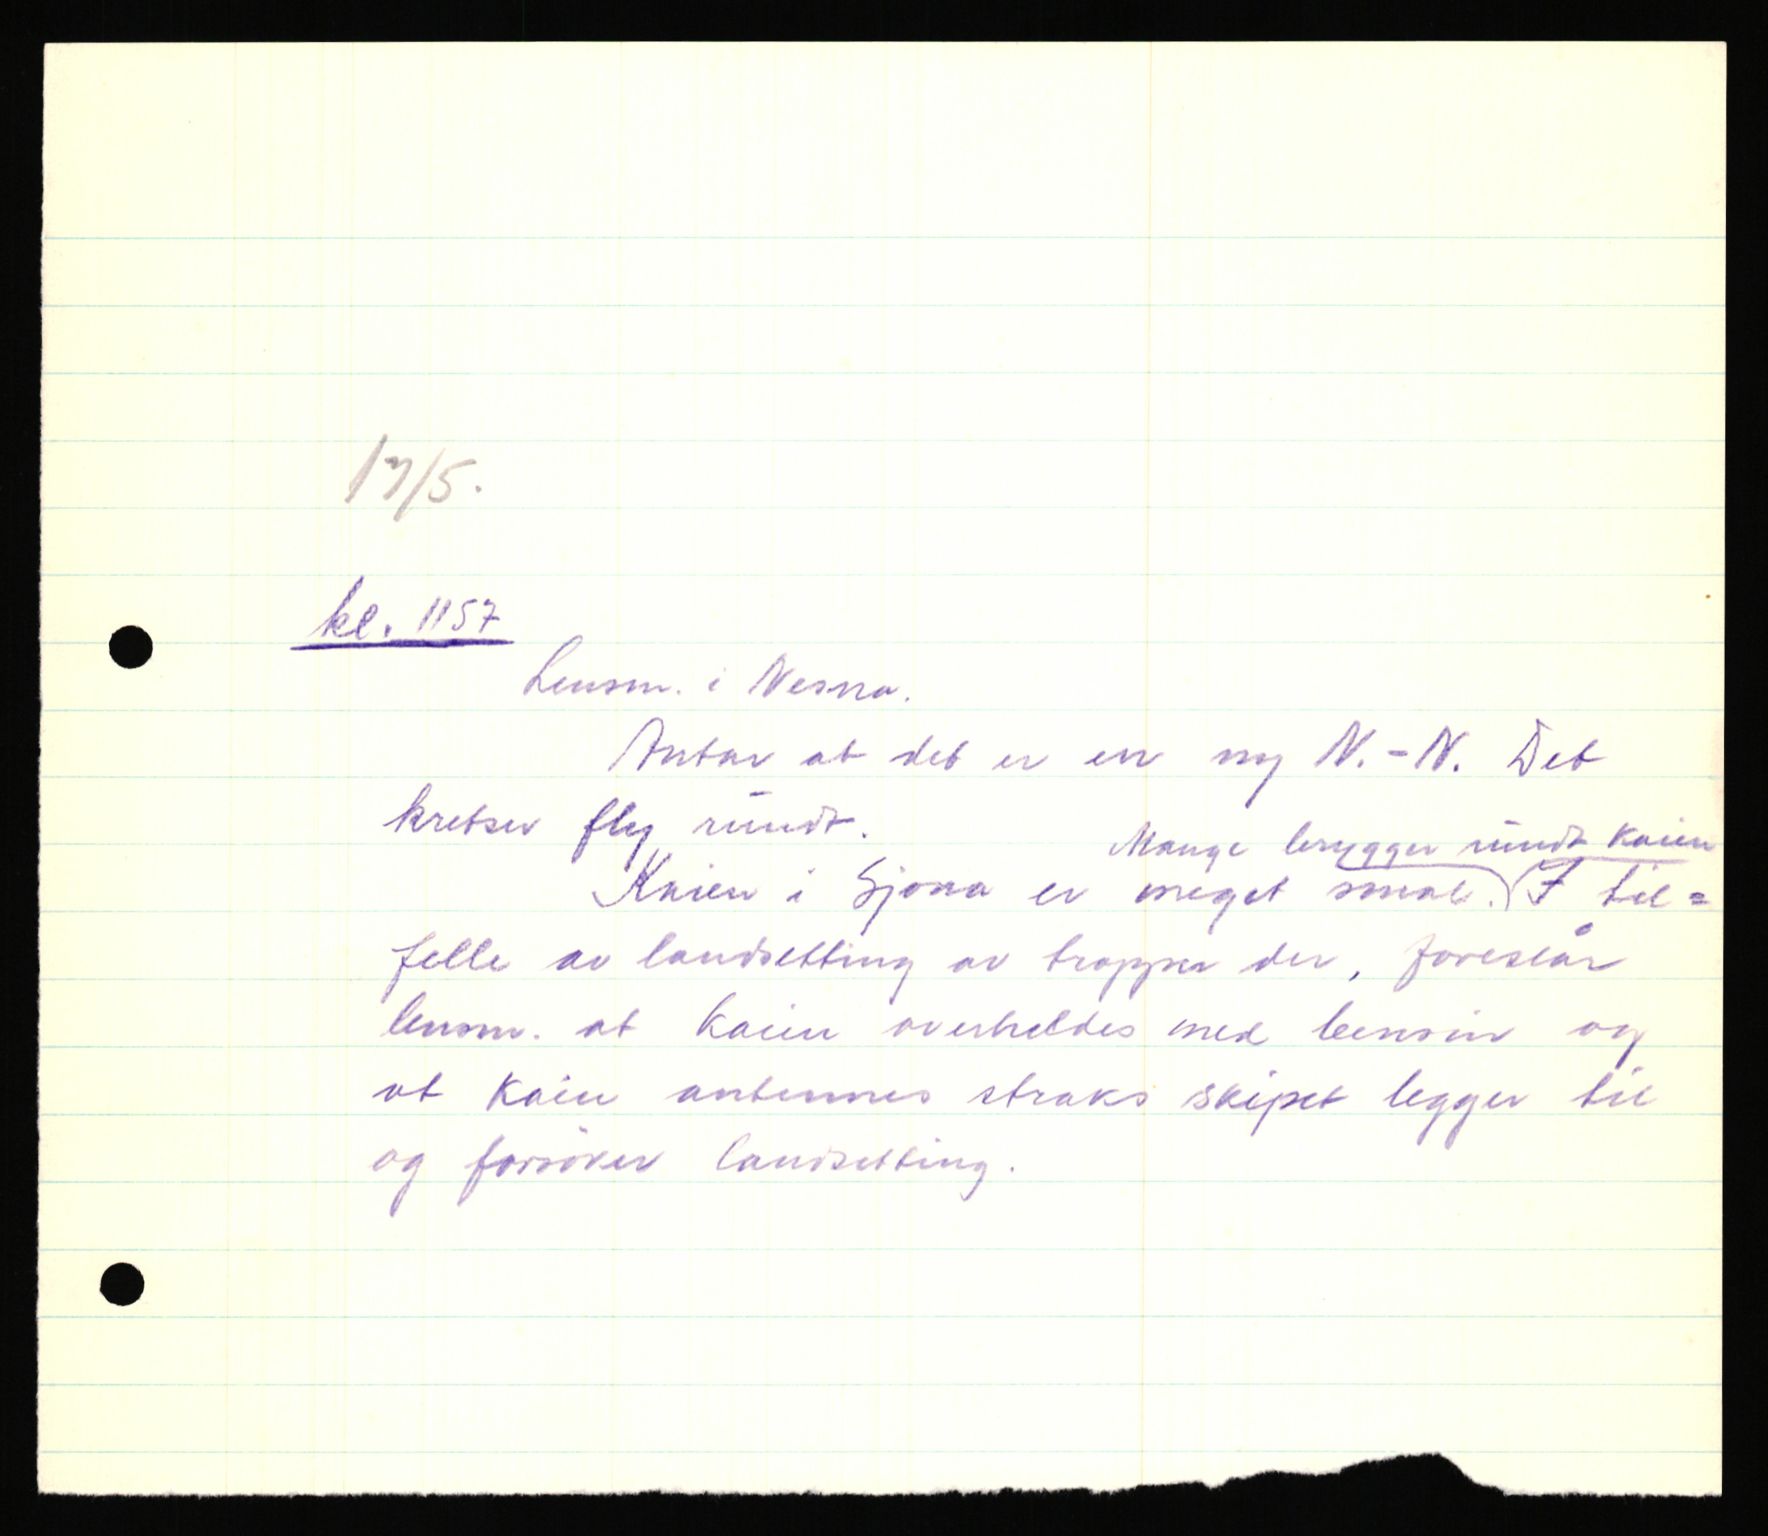 17/5.
kl. 1157
Lensm. i Nesna.
Antar at det er en ny N.-N. Det
kretser fly rundt.
Mange brygger rundt kaien
Kaien i Sjona er meget smal. I til=
felle av landsetting av tropper der, foreslår
lensm. at kaien overheldes med bensin og
at kaien antennes straks skipet legger til
og forsøker landsetting.